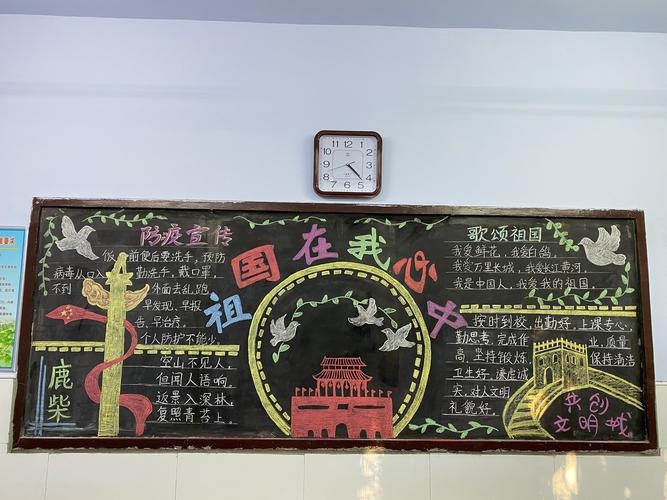 12
11
1
10
2
9
3
8
4
7
5
6
祖国在我心中
防疫宣传
饭前便后要洗手，预防
病毒从口入
勤洗手，戴口罩，
不到
外面去乱跑
早发现、早报
告、早治疗。
个人防护不能少。
鹿柴
空山不见人，
但闻人语响。
返景入深林，
复照青苔上。
歌颂祖国
我爱鲜花，我爱白鸽，
我爱万里长城，我爱长江黄河，
我是中国人，我爱我的祖国。
按时到校，出勤好，上课专心，
勤思考，完成作业，质量
高，坚持锻炼，保持清洁
卫生好，谦虚诚
实，对人文明
礼貌好。
共创
文明城